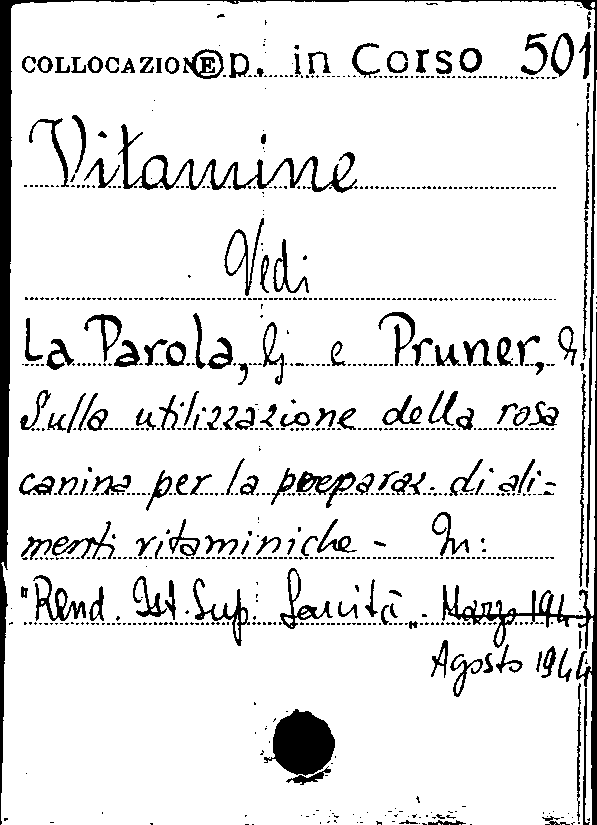 COLLOCAZIONE p. in Corso 501
Vitamine
Vedi
La Parola, G. e Pruner, G.
Sulla utilizzazione della rosa
canina per la preparaz. di ali=
menti vitaminiche - In:
"Rend. Ist. Sup. Sanità". Marzo 1943
Agosto 1944